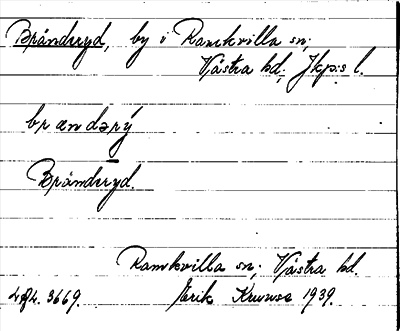 Brändryd, by i Ramkvilla sn.
Västra hd. Jkp:s l.
brændərý
Brändryd.
Ramkvilla sn, Västra hd.
3669. Erik 1939.